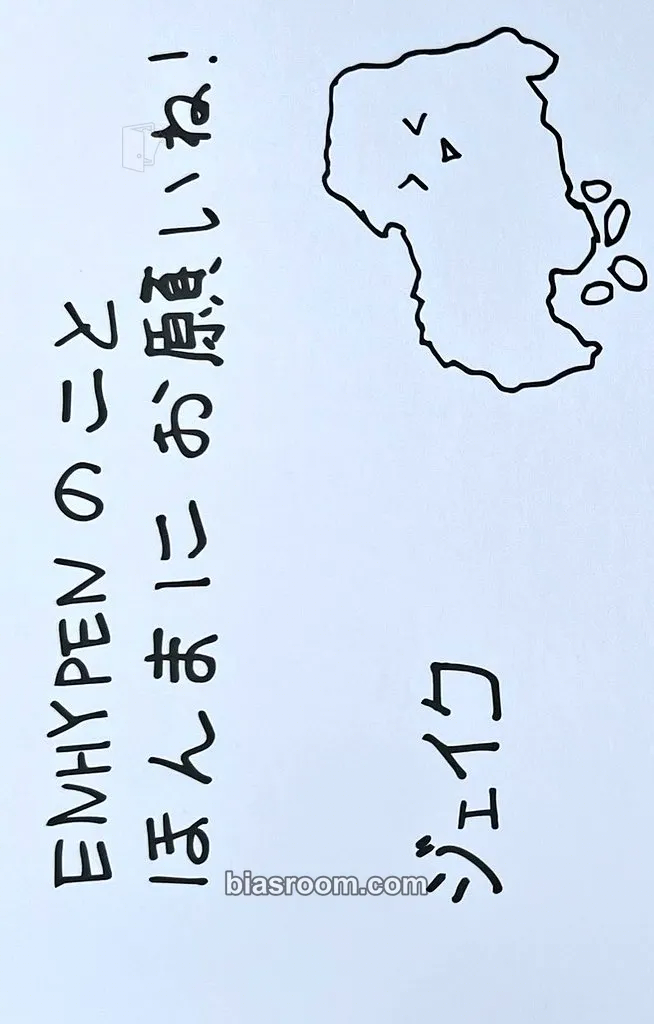 ENHYPENのこと
ほんまにお願いね!
ジェイク
biasroom.com